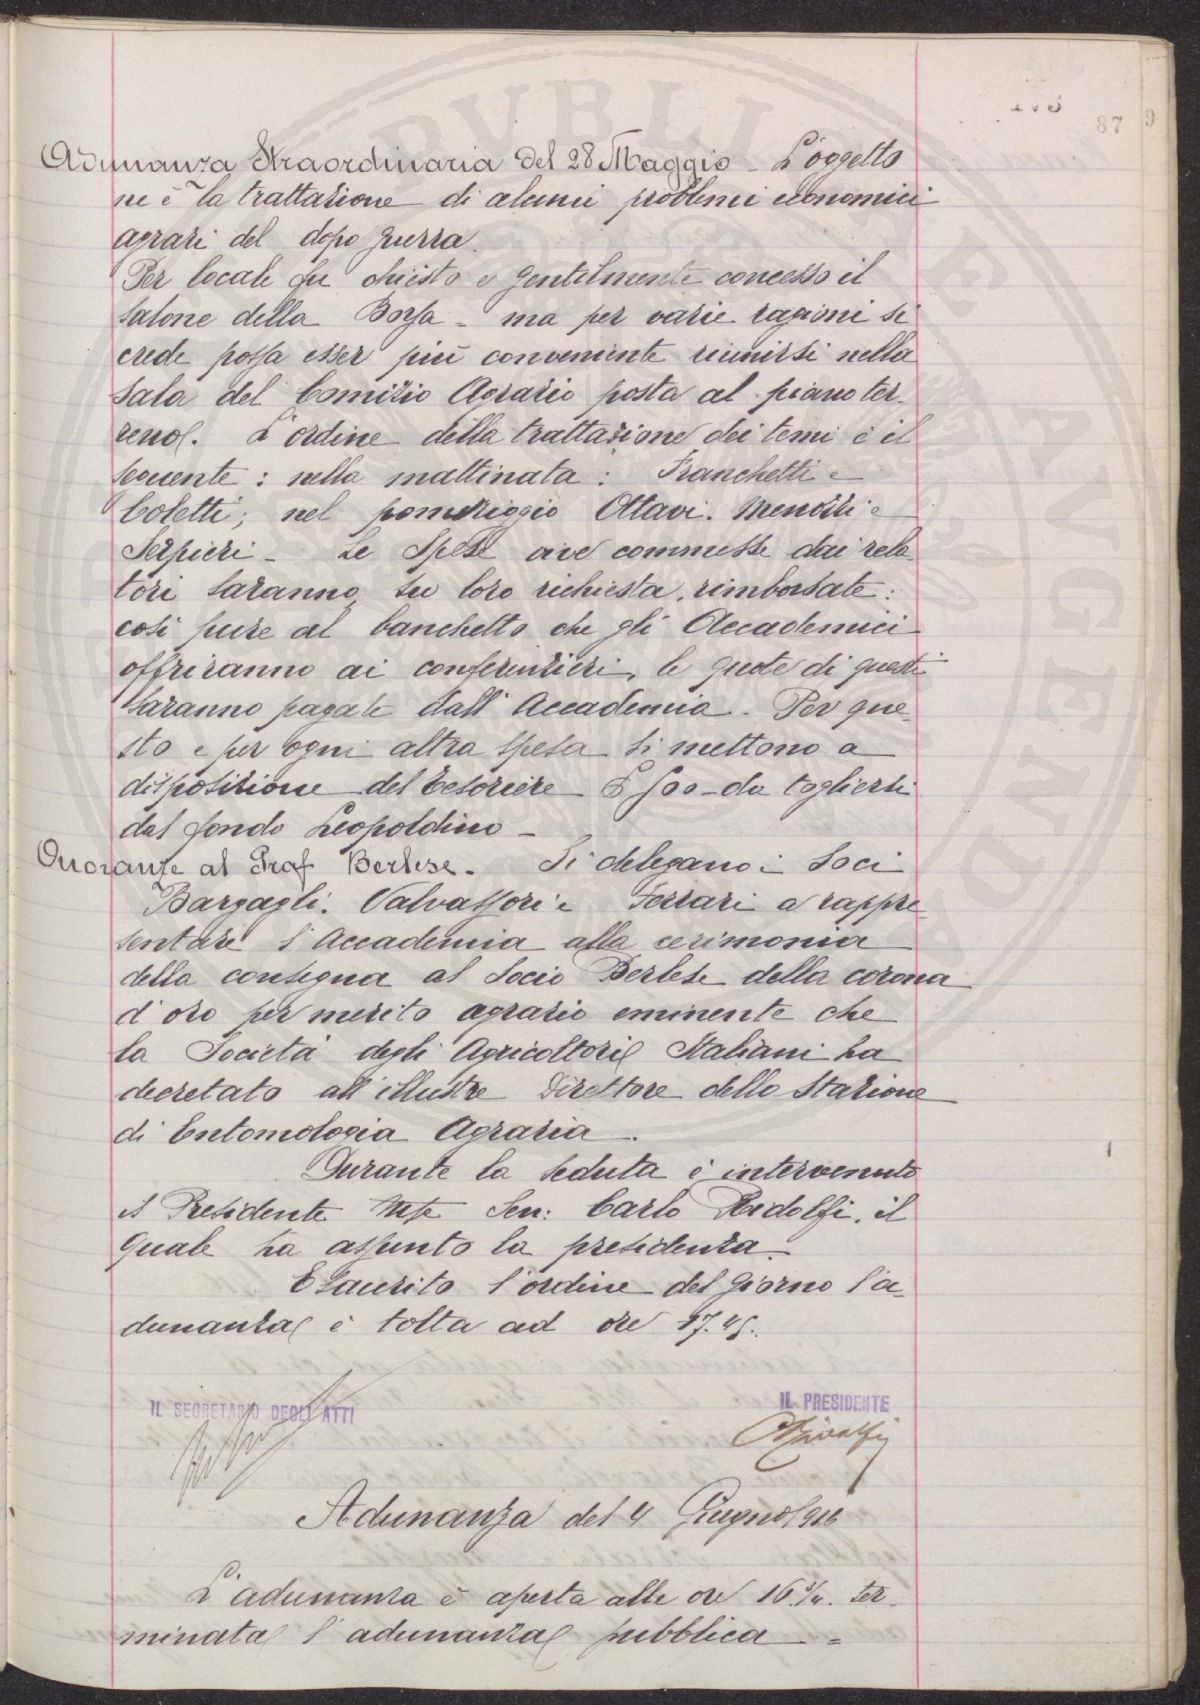 87 9
Adunanza Straordinaria del 28 Maggio - L'oggetto
ne è la trattazione di alcuni problemi economici
agrari del dopo guerra.
Per locale fu chiesto e gentilmente concesso il
salone della Borsa - ma per varie ragioni si
crede possa esser più conveniente riunirsi nella
sala del Comizio Agrario posta al piano ter-
reno. L'ordine della trattazione dei temi è il
seguente: nella mattinata: Franchetti e
Coletti; nel pomeriggio Ottavi. Menozzi e
Serpieri - Le Spese ove commesse dai rela
tori saranno, su loro richiesta, rimborsate:
così pure al banchetto che gli Accademici
offriranno ai conferenzieri, le quote di questi
saranno pagate dall'Accademia. Per que-
sto e per ogni altra spesa si mettono a
disposizione del tesoriere £ 500 - da togliersi
dal fondo Leopoldino -
Onoranze al Prof Berlese. Si delegano i Soci
Bargagli. Valvassori e Ferrari a rappre-
sentare l'Accademia alla cerimonia
della consegna al Socio Berlese della corona
d'oro per merito agrario eminente che
la Società degli Agricoltori Italiani ha
decretato all'illustre Direttore della Stazione
di Entomologia Agraria.
Durante la seduta è intervenuto
il Presidente Sen: Carlo Ridolfi, il
quale ha assunto la presidenza.
Esaurito l'ordine del giorno l'a-
dunanza è tolta ad ore 17.45.
IL SEGRETARIO DEGLI ATTI
IL PRESIDENTE
CRidolfi
Adunanza del 4 Giugno 1916
L'adunanza è aperta alle ore 16 3/4. ter-
minata l'adunanza pubblica -